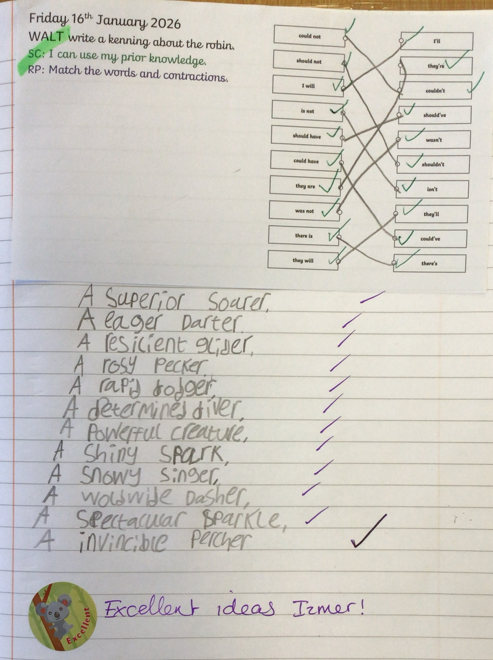 Friday 16th January 2026
WALT write a kenning about the robin.
SC: I can use my prior knowledge.
RP: Match the words and contractions.
could not
should not
I will
is not
should have
could have
they are
was not
there is
they will
I'll
they're
couldn't
should've
wasn't
shouldn't
isn't
they'll
could've
there's
A Superior Soarer,
A eager Darter
A resilient glider,
A rosy Pecker
A rapid dodger,
A determined diver,
A Powerful creature,
A Shiny Spark,
A Snowy Singer,
A woldwide Dasher,
A Spectacular Sparkle,
A invincible Percher
Excellent
Excellent ideas Izmer!